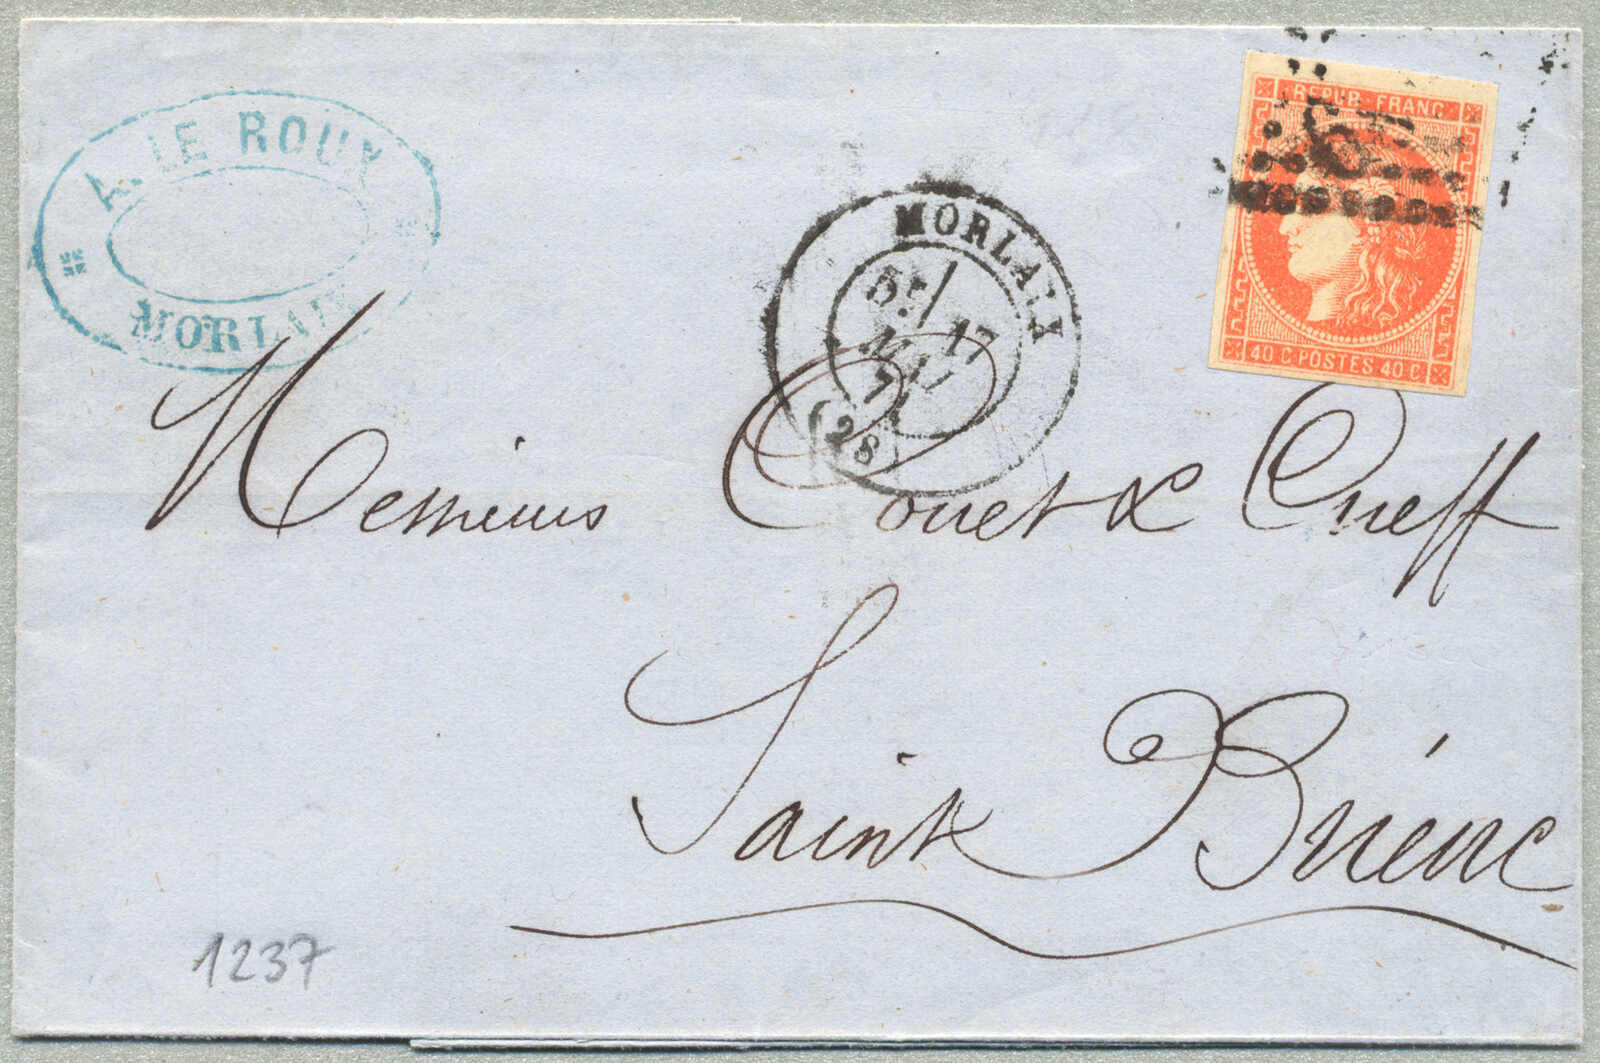 A. LE ROUX
MORLAIX
MORLAIX
5E/
17
71
(28)
REPUB FRANC
40 C POSTES 40 C
Messieurs Couet & Cueff
Saint Brieuc
1237